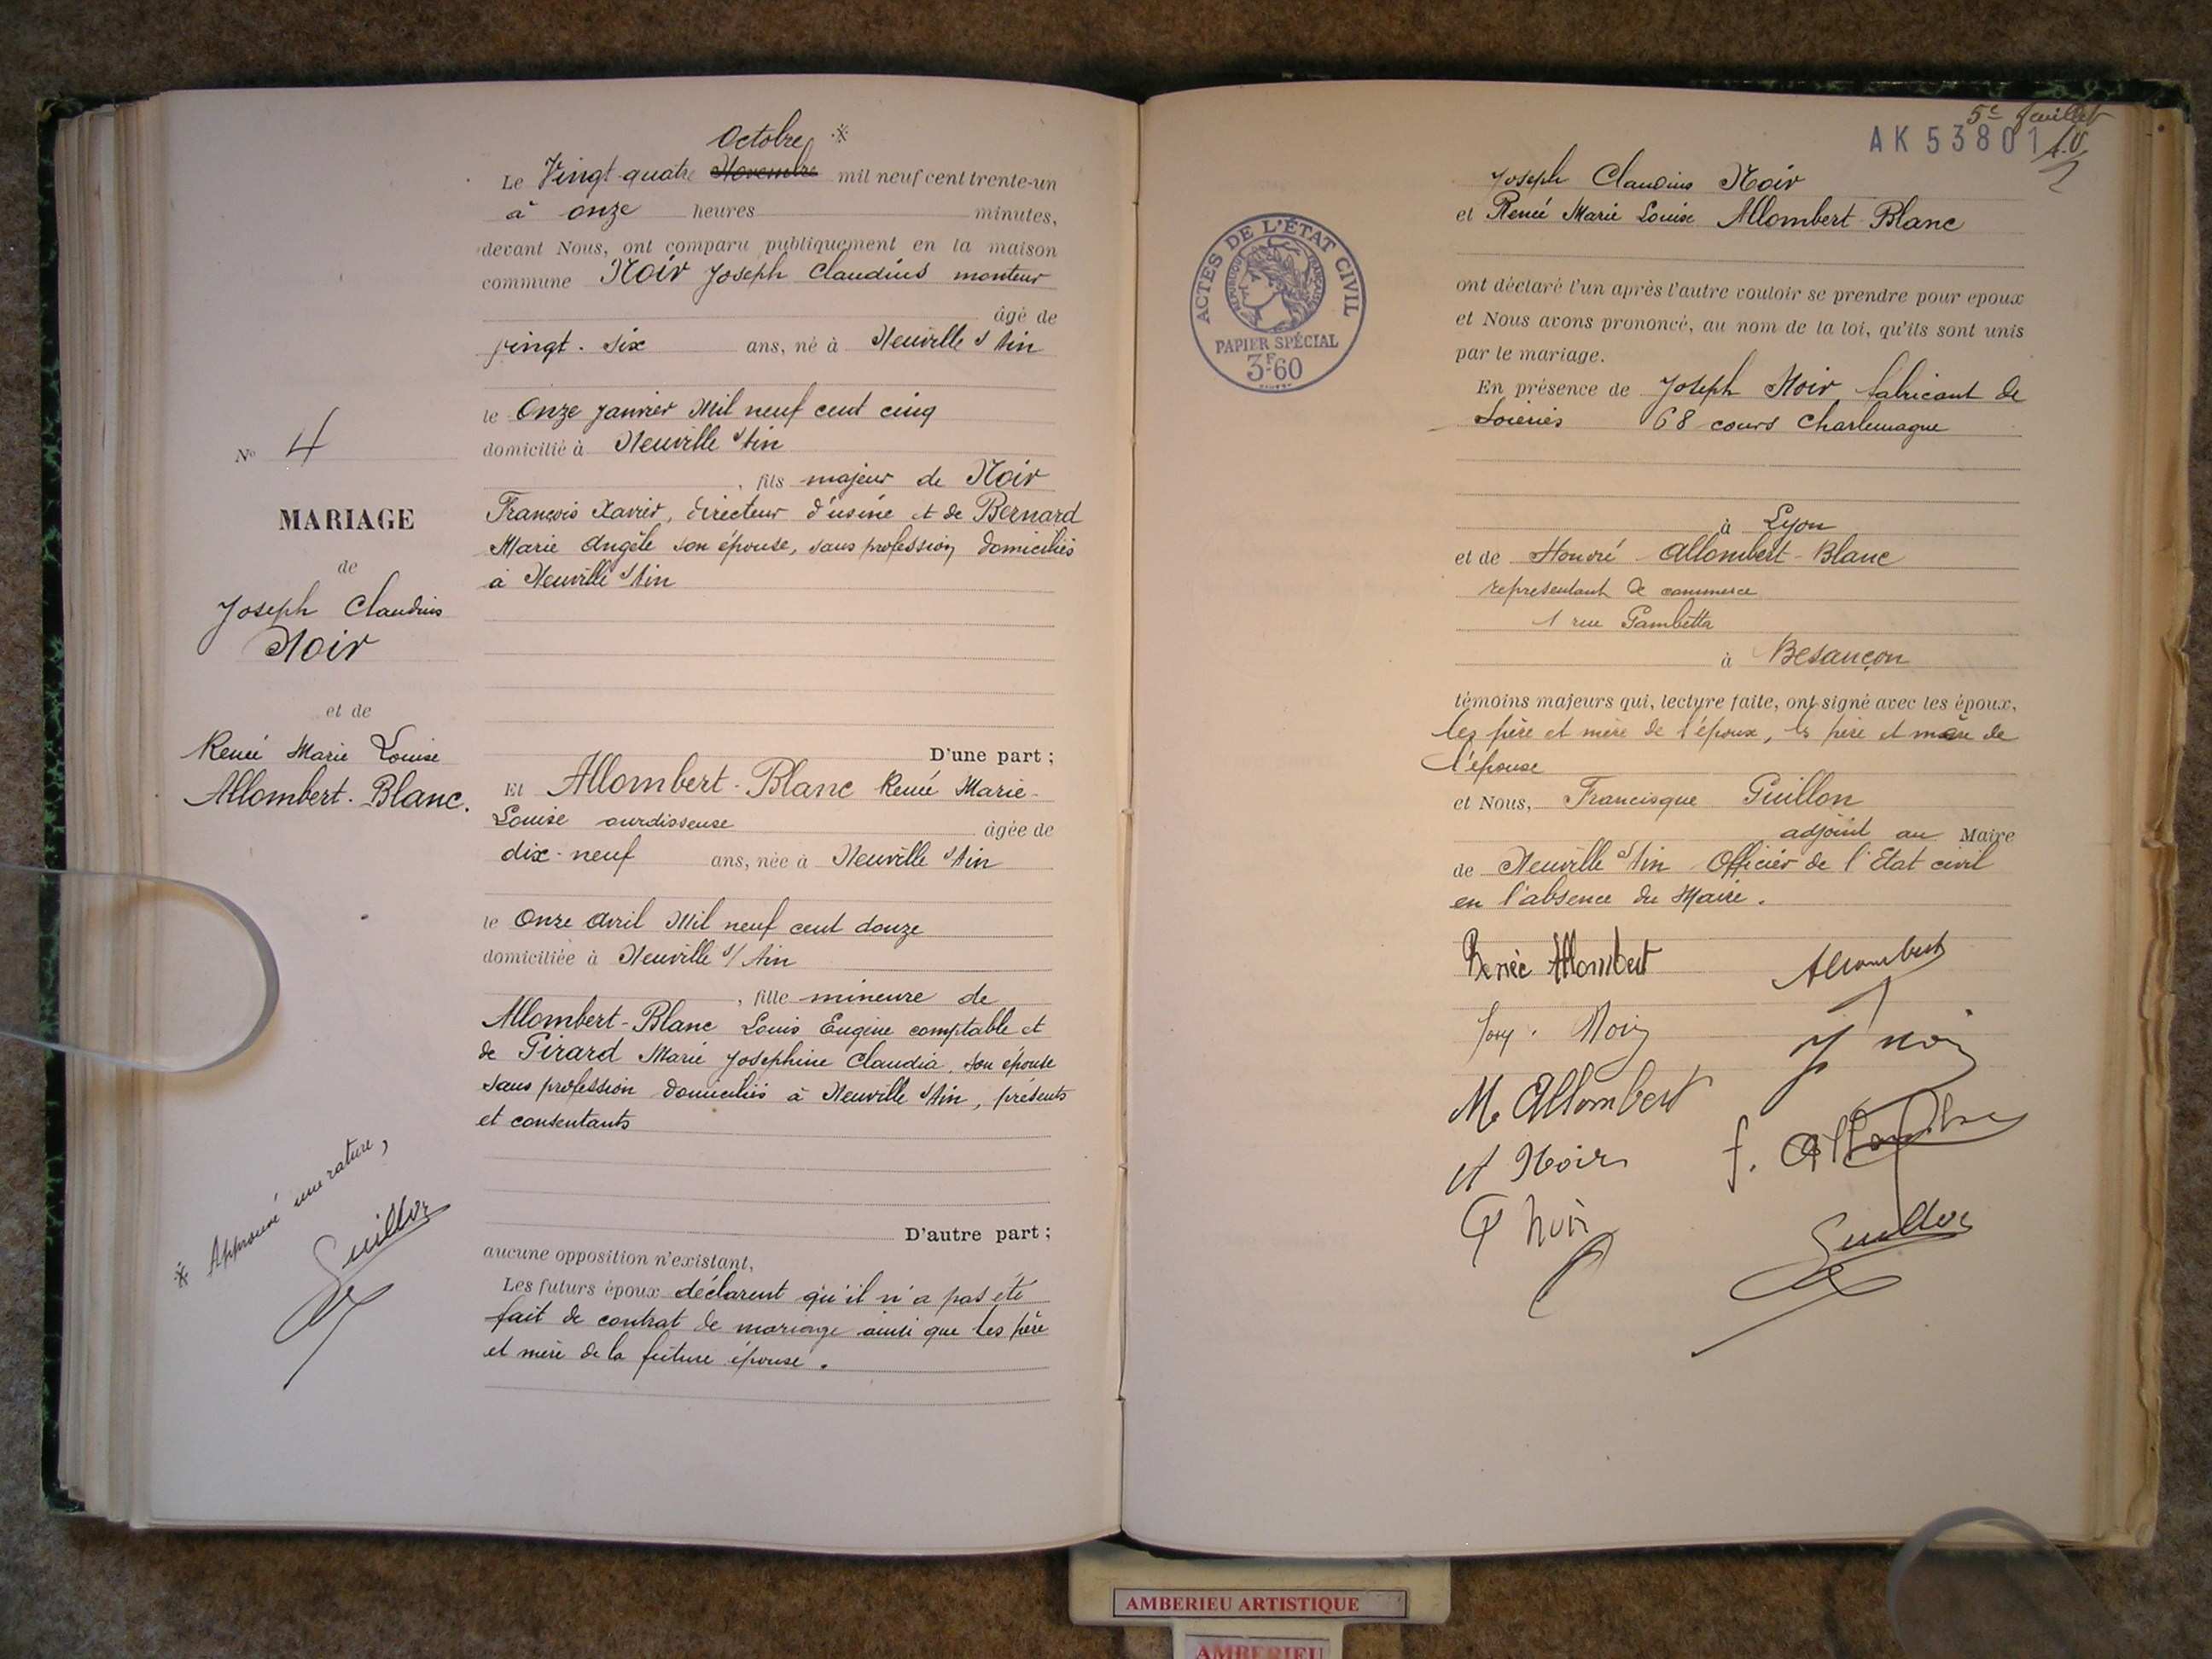 Octobre ※
Le Vingt-quatre Novembre mil neuf cent trente-un
à onze heures minutes,
devant Nous, ont comparu publiquement en la maison
commune Noir Joseph Claudius monteur
âgé de
vingt-six ans, né à Neuville s/ Ain
le Onze Janvier Mil neuf cent cinq
domicilié à Neuville s/ Ain
, fils majeur de Noir
François Xavier, directeur d'usine et de Bernard
Marie Angèle son épouse, sans profession, domiciliés
à Neuville s/ Ain
D'une part ;
Et Allombert-Blanc Renée Marie-
Louise ourdisseuse âgée de
dix-neuf ans, née à Neuville s/ Ain
le Onze Avril Mil neuf cent douze
domiciliée à Neuville s/ Ain
, fille mineure de
Allombert-Blanc Louis Eugène comptable et
de Pirard Marie Josephine Claudia, son épouse
sans profession domiciliés à Neuville s/ Ain, présents
et consentants
D'autre part ;
aucune opposition n'existant,
Les futurs époux déclarent qu'il n'a pas été
fait de contrat de mariage ainsi que les père
et mère de la future épouse.
No 4
MARIAGE
de
Joseph Claudius
Noir
et de
Renée Marie Louise
Allombert-Blanc.
※ Approuvé une rature,
Guillon
5e feuillet
AK 53801
Joseph Claudius Noir
et Renée Marie Louise Allombert-Blanc
ACTES DE L'ÉTAT CIVIL
RÉPUBLIQUE FRANÇAISE
PAPIER SPÉCIAL
3F60
ont déclaré l'un après l'autre vouloir se prendre pour époux
et Nous avons prononcé, au nom de la loi, qu'ils sont unis
par le mariage.
En présence de Joseph Noir fabricant de
Soieries 68 cours Charlemagne
à Lyon
et de Honoré Allombert-Blanc
représentant de commerce
1 rue Gambetta
à Besançon
témoins majeurs qui, lecture faite, ont signé avec les époux,
les père et mère de l'époux, les père et mère de
l'épouse
et Nous, Francisque Guillon
adjoint au Maire
de Neuville s/ Ain Officier de l'Etat civil
en l'absence du Maire.
Renée Allombert Allombert
Noir J Noir
M. Allombert
A Noir
Noir Guillon
AMBERIEU ARTISTIQUE
AMBERIEU